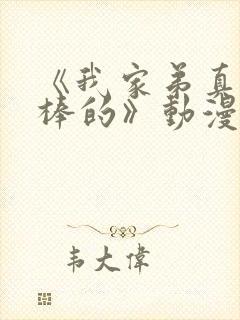 《我家弟真
棒的》動漫
韦大偉